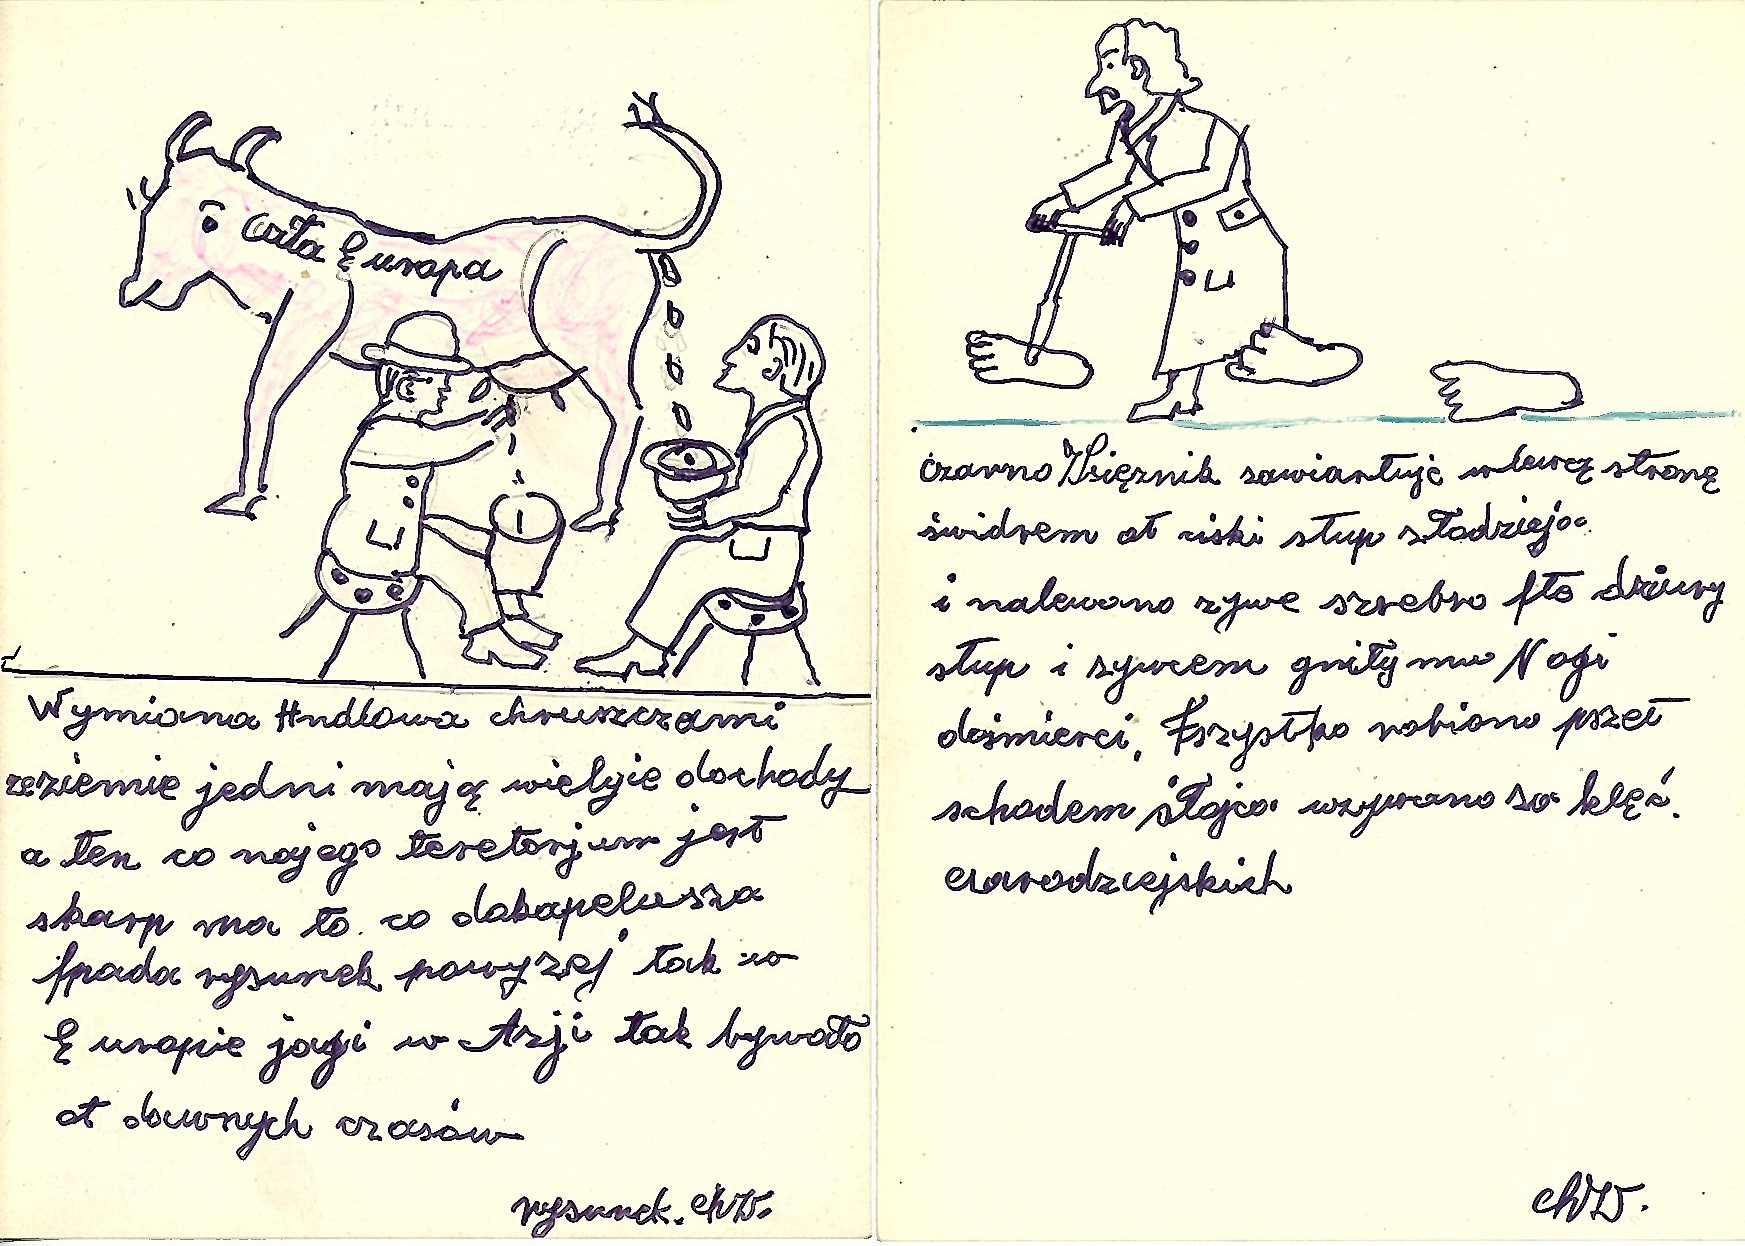 cała Europa
Wymiana Hndlowa chruszczami
zeziemie jedni mają wielgie dochody
a ten co najego teretorjum jest
skarp ma to co dokapelusza
fpada rysunek powyżej tak w
Europie jagi w Azji tak bywało
ot dawnych czasów
rysunek. ChW.
czarno Księżnik sawiartuje wlewą stronę
świdrem ot ciski stup złodzieja
i nalewano zywe szrebro fto dziury
stup i sywcem gniły mu Nogi
dośmierci, Fszystko robiono pszet
schodem słajca wzywano so klęć.
czarodziejskich
ChW.